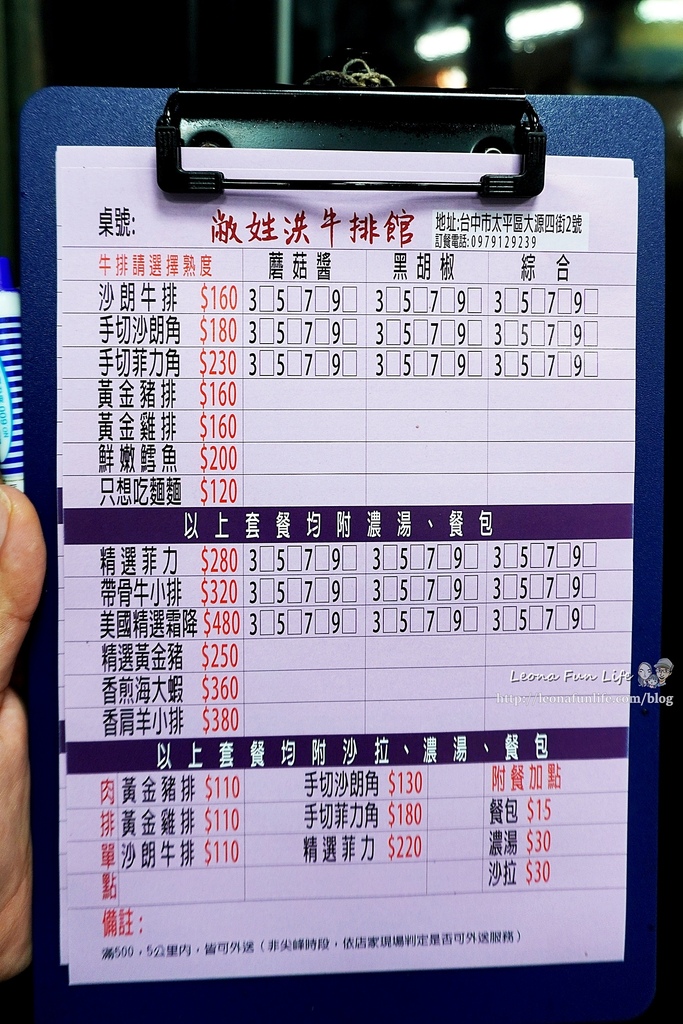 桌號: 敝姓洪牛排館 地址:台中市太平區大源四街2號
訂餐電話:0979129239
牛排請選擇熟度 蘑菇醬 黑胡椒 綜合
沙朗牛排 $160 3□5□7□9□ 3□5□7□9□ 3□5□7□9□
手切沙朗角 $180 3□5□7□9□ 3□5□7□9□ 3□5□7□9□
手切菲力角 $230 3□5□7□9□ 3□5□7□9□ 3□5□7□9□
黃金豬排 $160
黃金雞排 $160
鮮嫩鱈魚 $200
只想吃麵麵 $120
以上套餐均附濃湯、餐包
精選菲力 $280 3□5□7□9□ 3□5□7□9□ 3□5□7□9□
帶骨牛小排 $320 3□5□7□9□ 3□5□7□9□ 3□5□7□9□
美國精選霜降 $480 3□5□7□9□ 3□5□7□9□ 3□5□7□9□
精選黃金豬 $250
香煎海大蝦 $360
香肩羊小排 $380
Leona Fun Life
http://leonafunlife.com/blog
以上套餐均附沙拉、濃湯、餐包
肉 黃金豬排 $110 手切沙朗角 $130 附餐加點
排 黃金雞排 $110 手切菲力角 $180 餐包 $15
單 沙朗牛排 $110 精選菲力 $220 濃湯 $30
點 沙拉 $30
備註:
滿500,5公里內,皆可外送(非尖峰時段,依店家現場判定是否可外送服務)